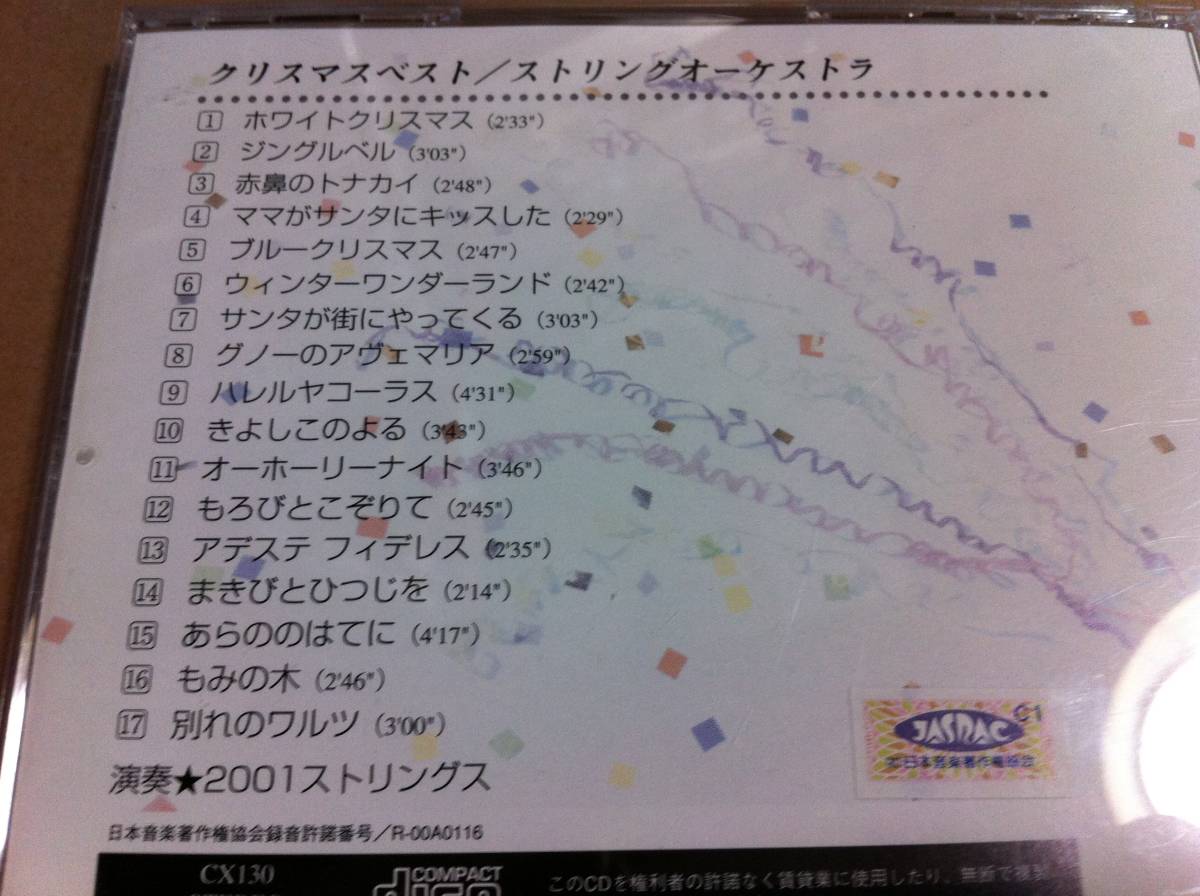 クリスマスベスト／ストリングオーケストラ
1 ホワイトクリスマス（2'33"）
2 ジングルベル（3'03"）
3 赤鼻のトナカイ（2'48"）
4 ママがサンタにキッスした（2'29"）
5 ブルークリスマス（2'47"）
6 ウィンターワンダーランド（2'42"）
7 サンタが街にやってくる（3'03"）
8 グノーのアヴェマリア（2'59"）
9 ハレルヤコーラス（4'31"）
10 きよしこのよる（3'43"）
11 オーホーリーナイト（3'46"）
12 もろびとこぞりて（2'45"）
13 アデステ フィデレス（2'35"）
14 まきびとひつじを（2'14"）
15 あらののはてに（4'17"）
16 もみの木（2'46"）
17 別れのワルツ（3'00"）
演奏★2001ストリングス
JASRAC
日本音楽著作権協会
日本音楽著作権協会録音許諾番号／R-00A0116
CX130
COMPACT
disc
このCDを権利者の許諾なく賃貸業に使用したり、無断で複製